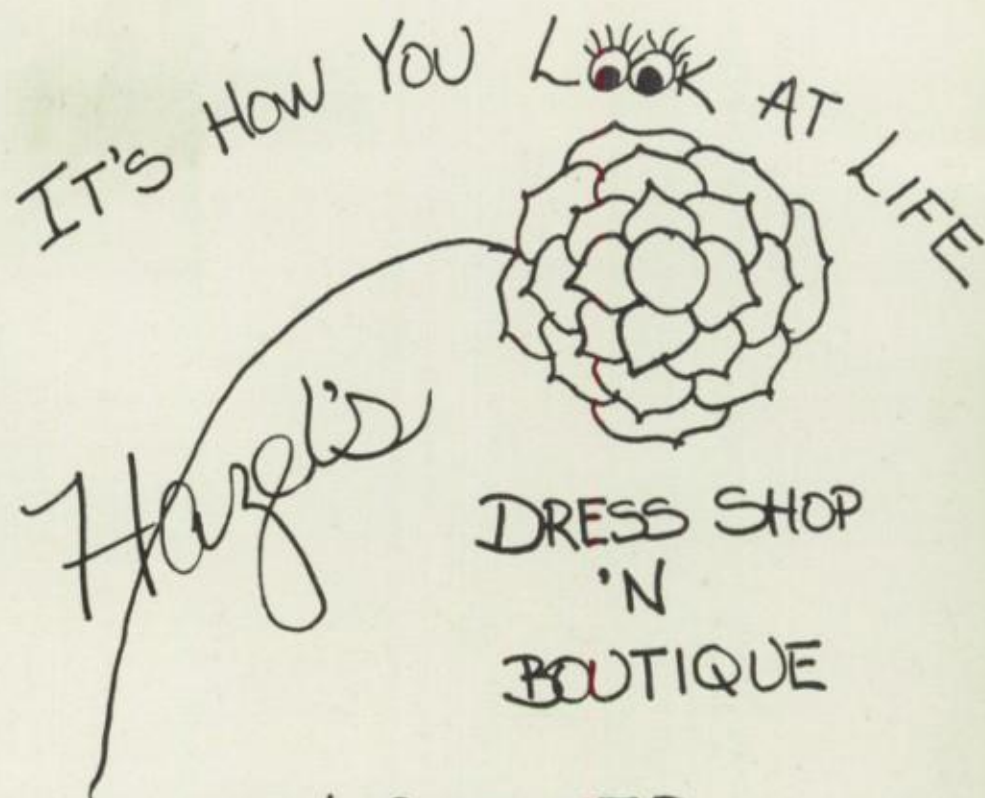 IT'S HOW YOU LOOK AT LIFE
Hazel's
DRESS SHOP
'N
BOUTIQUE